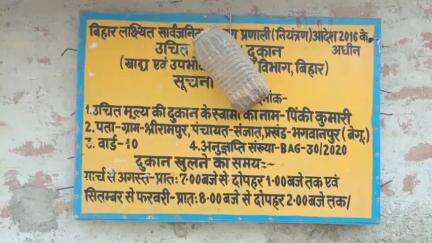 बिहार लक्ष्यित सार्वजनि प्रणाली (नियंत्रण) आदेश 2016 के
उचित दुकान अधीन
(खाद्य एवं उपभो विभाग, बिहार)
सूचना
1. उचित मूल्य की दुकान के स्वामी का नाम- पिंकी कुमारी
2. पता-ग्राम-श्रीरामपुर, पंचायत-संजात, प्रखंड-भगवानपुर (बेगू.)
3. वार्ड-10 4. अनुज्ञप्ति संख्या-BAG-30/2020
दुकान खुलने का समय:-
मार्च से अगस्त-प्रातः 7:00 बजे से दोपहर 1:00 बजे तक एवं
सितम्बर से फरवरी-प्रातः 8:00 बजे से दोपहर 2:00 बजे तक/